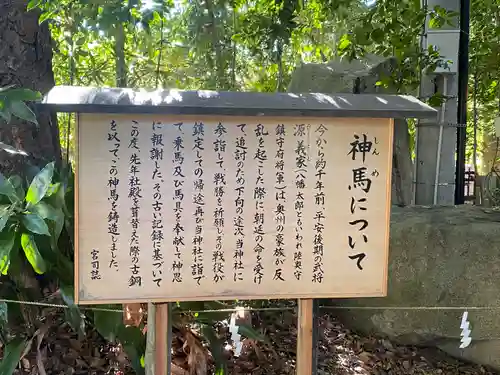 神馬について
しんめ
今から約千年前、平安後期の武将
源義家(八幡太郎ともいわれ陸奥守
鎮守府将軍)は、奥州の豪族が反
乱を起こした際に朝廷の命を受け
て、追討のため下向の途次当神社に
参詣して、戦勝を祈願しその戦役が
鎮定しての帰途再び当神社に詣で
て、乗馬及び馬具を奉献して神恩
に報謝した。その古い記録に基づいて
この度、先年社殿を葺替えた際の古銅
を以って、この神馬を鋳造しました。
宮司誌